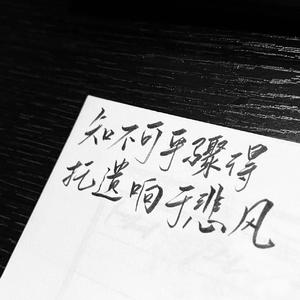 知不可乎骤得
托遗响于悲风